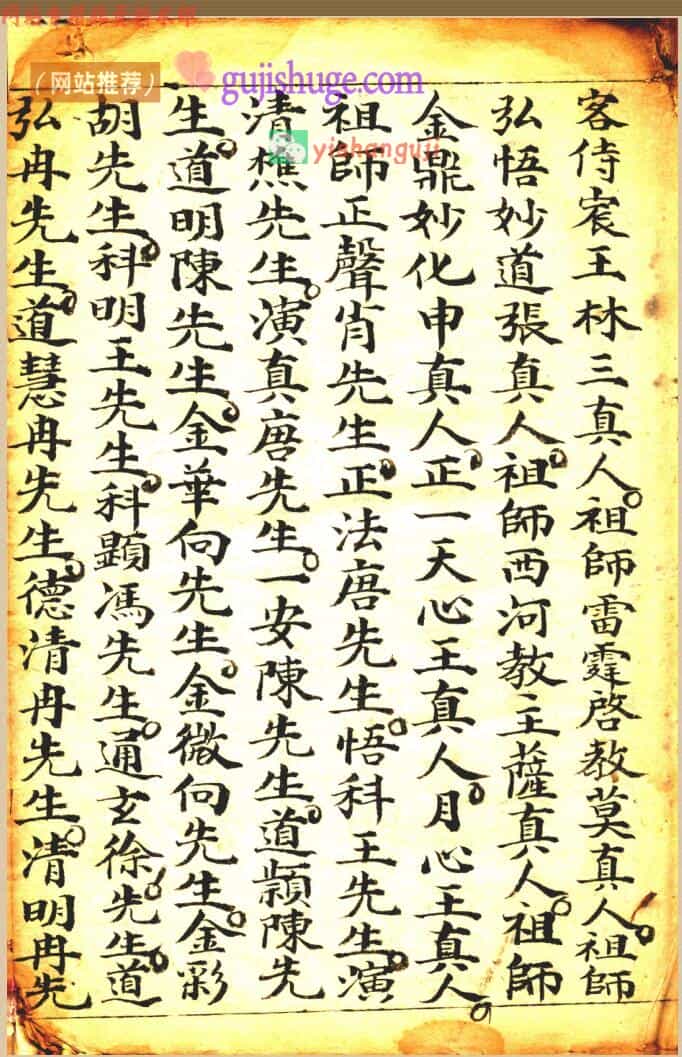 （网站推荐）
gujishuge.com
yishanguji
客侍宸王林三真人祖師雷霆啓教莫真人祖師
弘悟妙道張真人祖師西河教主薩真人祖師
金鼎妙化申真人正一天心王真人月心王真人
祖師正聲肖先生正法唐先生悟科王先生演
清樵先生演真唐先生一安陳先生道顯陳先
生道明陳先生金華向先生金微向先生金彩
胡先生科明王先生科顕馮先生通玄徐先生道
弘冉先生道慧冉先生德清冉先生清明冉先